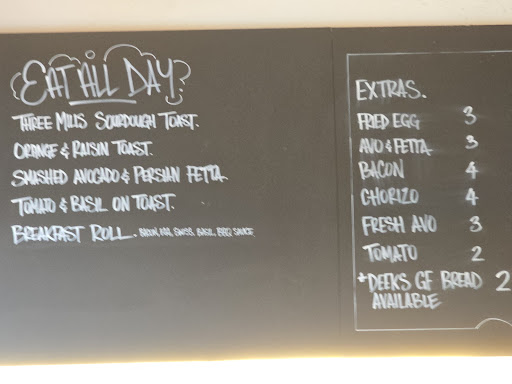 EAT ALL DAY
THREE MILLS SOURDOUGH TOAST.
ORANGE & RAISIN TOAST.
SMASHED AVOCADO & PERSIAN FETTA
TOMATO & BASIL ON TOAST.
BREAKFAST ROLL. BACON, EGG, SWISS, BASIL, BBQ SAUCE
EXTRAS.
FRIED EGG 3
AVO & FETTA 3
BACON 4
CHORIZO 4
FRESH AVO 3
TOMATO 2
*DEEKS GF BREAD 2
AVAILABLE